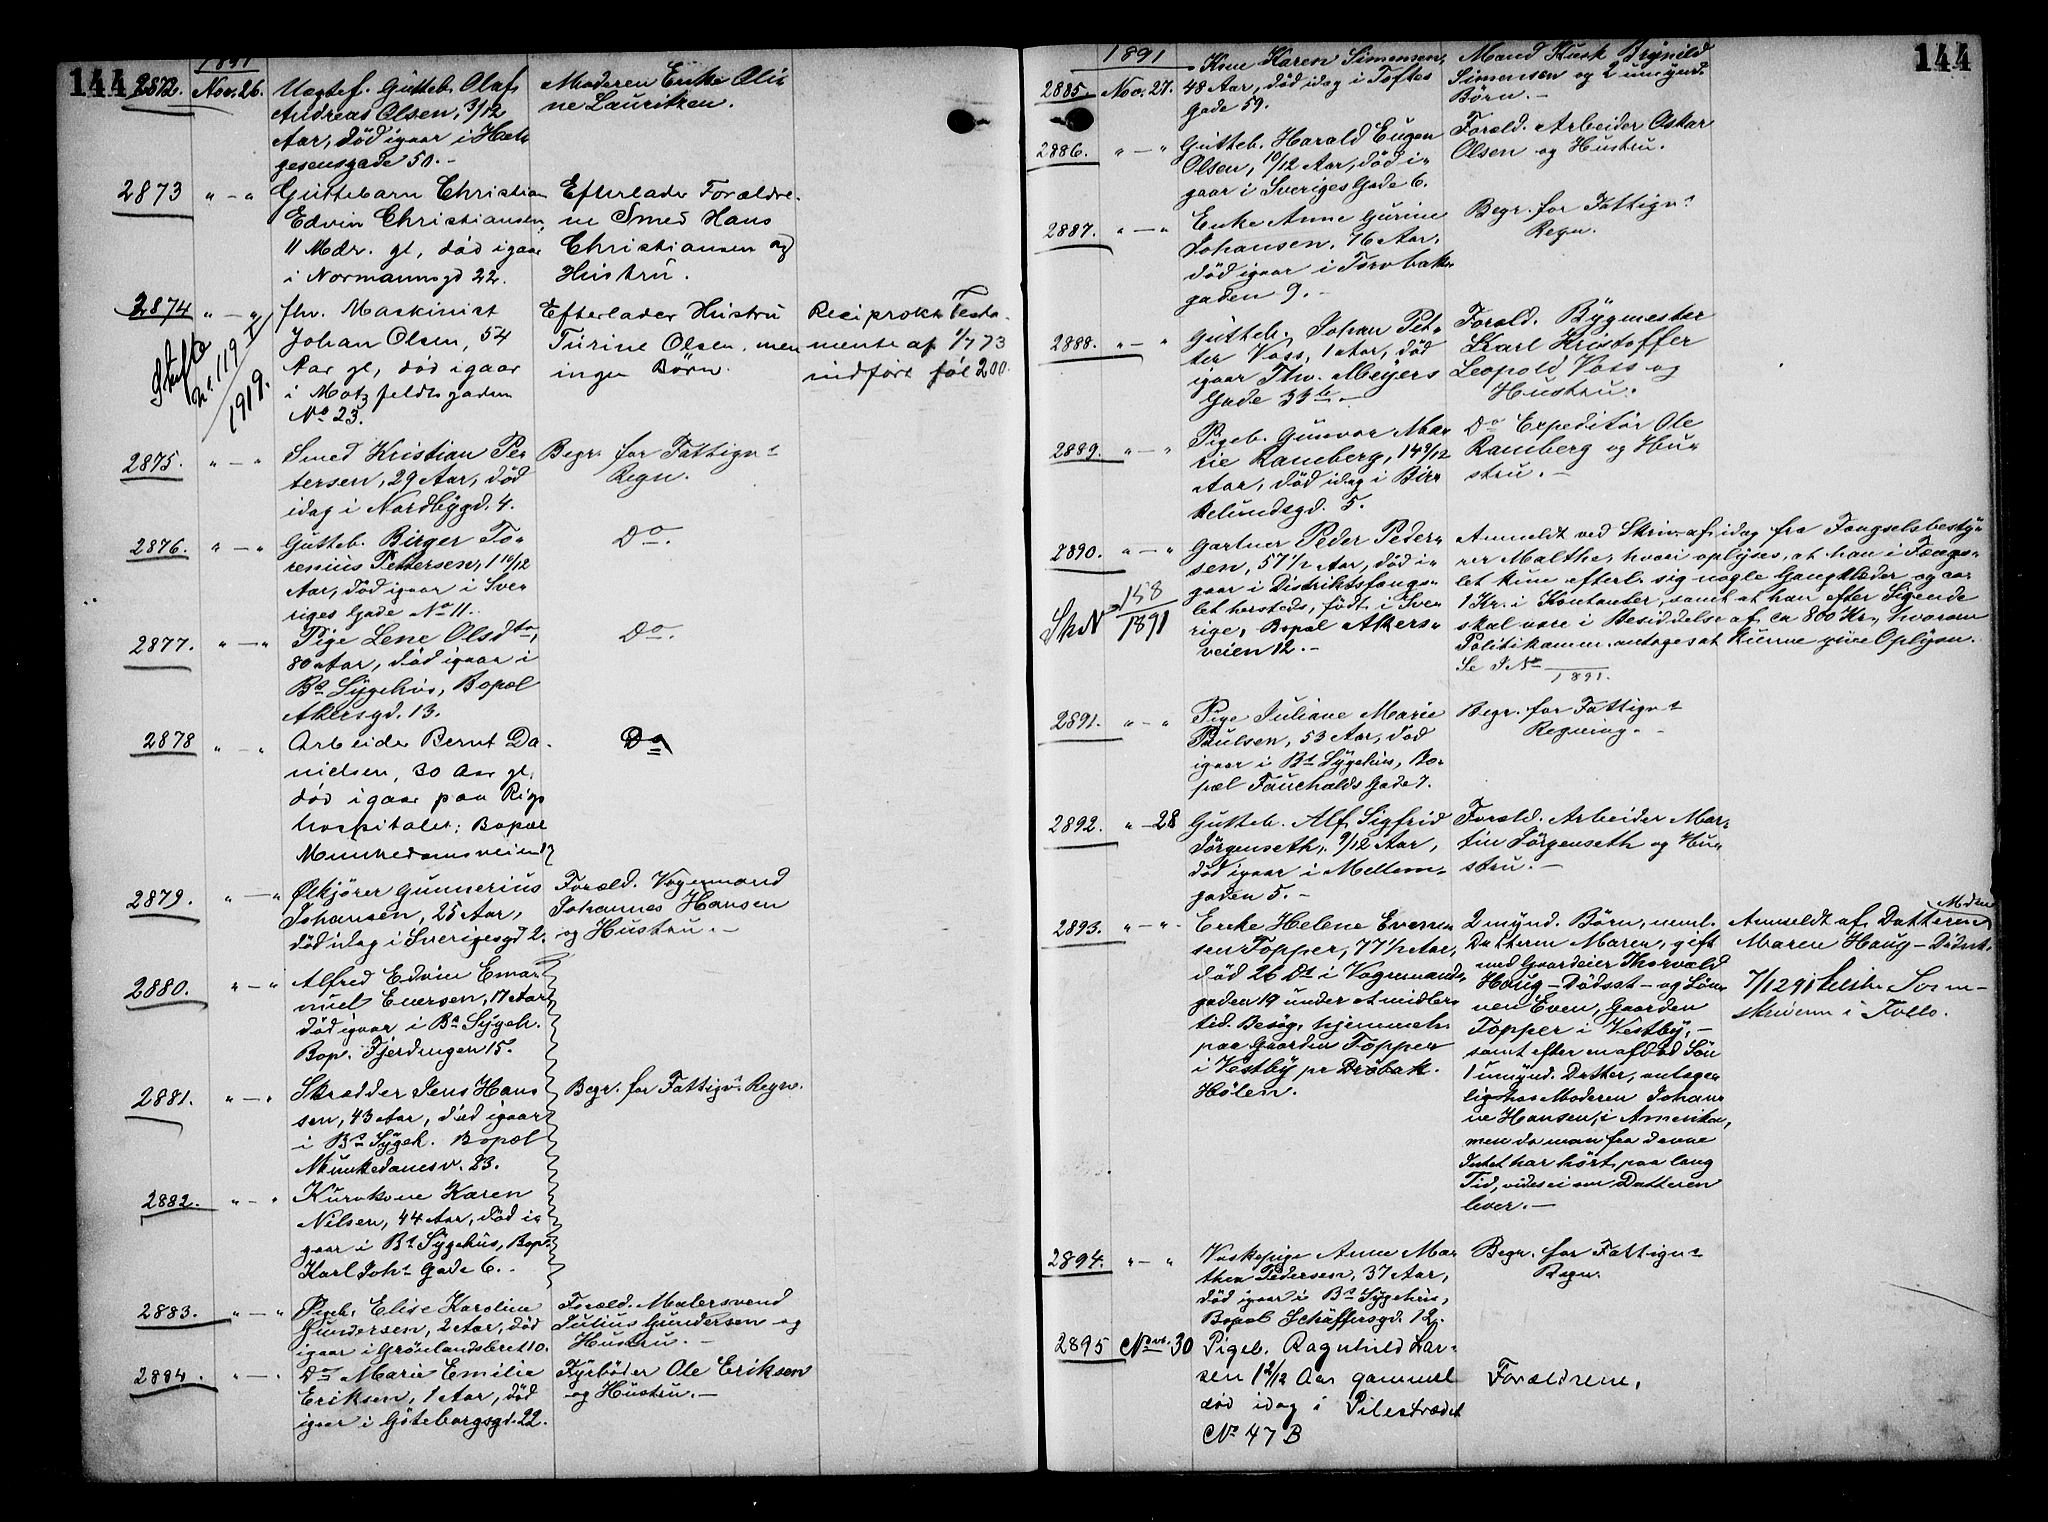 144
1891
2872. Nov. 26. Uægtef. Gutteb. Olaf
Andreas Olsen, 3/12
Aar, död igaar i Hel-
gesensgade 50. -
Moderen Enke Oli-
ne Lauritzen.
2873 " - " Guttebarn Christian
Edvin Christiansen,
11 Mdr. gl, død igaar
i Normannsgd 22.
Efterlader Forældre-
ne Smed Hans
Christiansen og
Hustru.
2874 " - " fhv. Maskinist
Johan Olsen, 54
Aar gl, død igaar
i Motzfeldtsgaden
No 23.
Efterlader Hustru
Turine Olsen, men
ingen Børn.
Reciprokt Testa-
mente af 1/7 73
indført fol 200.
Skifte
No. 119
1919.
2875. " - " Smed Kristian Pe-
tersen, 29 Aar, død
idag i Nordbygd. 4.
Begr. for Fattigv:s
Regn.
2876. " - " Gutteb. Birger To-
renius Pettersen, 1 10/12
Aar, död igaar i Sve-
riges Gade No 11.
Do.
2877. " - " Pige Lene Olsdtr,
80 Aar, död igaar i
Bs Sygehus, Bopæl
Akersgd. 13.
Do.
2878 " - " Arbeider Bernt Da-
nielsen, 30 Aar gl,
død igaar paa Rigs
hospitalet; Bopæl
Munkedamsveien 17
Do
2879. " - " Ølkjører Gunnerius
Johansen, 25 Aar,
död idag i Sverigesgd 2.
Foræld. Vognmand
Johannes Hansen
og Hustru. -
2880. " - " Alfred Edvin Eman-
uel Evensen, 17 Aar
död igaar i Bs Sygeh.
Bop. Fjerdingen 15.
2881. " - " Skrædder Jens Han-
sen, 43 Aar, död igaar
i Bs Sygeh. Bopæl
Munkedamsv. 23.
Begr. for Fattigv:s Regn.
2882. " - " Kurvkone Karen
Nilsen, 44 Aar, död i-
gaar i Bs Sygehus, Bop.
Karl Johs Gade 6.
2883. " - " Pigeb. Elise Karoline
Gundersen, 2 Aar, död
igaar i Grönlandsleret 10.
Foræld. Malersvend
Julius Gundersen og
Hustru. -
2884. " - " Do Marie Emilie
Eriksen, 1 Aar, död
igaar i Göteborgsgd. 22.
Fyrböder Ole Eriksen
og Hustru. -
144
1891
2885. Nov. 27. Kone Karen Simensen,
48 Aar, död idag i Toftes
Gade 59.
Mand Kusk Brynild
Simensen og 2 umynd.
Börn. -
2886. " - " Gutteb. Harald Eugen
Olsen, 10/12 Aar, död i-
gaar i Sveriges Gade 6.
Foræld. Arbeider Oskar
Olsen og Hustru.
2887. " - " Enke Anne Gurine
Johansen, 76 Aar,
död igaar i Torvbak-
gaden 9. -
Begr. for Fattigv:s
Regn.
2888. " - " Gutteb. Johan Pet-
ter Voss, 1 Aar, död
igaar Thv. Meyers
Gade 33b. -
Foræld. Bygmester
Karl Kristoffer
Leopold Voss og
Hustru.
2889. " - " Pigeb. Gunvor Ma-
rie Ramberg, 14 8/12
Aar, död idag i Bir-
kelundsgd. 5.
Do Expeditör Ole
Ramberg og Hu-
stru. -
2890. " - " Gartner Peder Peder-
sen, 57 1/2 Aar, död i-
gaar i Distriktsfængs-
let hersteds, födt i Sve-
rige, Bopæl Akers-
veien 12. -
Anmeldt ved Skriv. af idag fra Fængselsbesty-
rer Malthe, hvori oplyses, at han i Fængs-
let kun efterl. sig nogle Gangklæder og ca
1 Kr. i Kontanter, samt at han efter Sigende
skal være i Besiddelse af ca 800 Kr., hvorom
Politikamm. antages at kunne give Oplysn.
Se J No
1891.
Sk No 158
1891
2891. " - " Pige Juliane Marie
Paulsen, 53 Aar, död
igaar i Bs Sygehus, Bo-
pæl Fauchalds Gade 7.
Begr. for Fattigv:s
Regning. -
2892. " - 28 Gutteb. Alf Sigfrid
Jörgenseth, 9/12 Aar,
död igaar i Mellem-
gaden 5. -
Foræld. Arbeider Mar-
tin Jörgenseth og Hu-
stru. -
2893. " - " Enke Helene Even-
sen Topper, 77 1/2 Aar,
död 26 Ds i Vognmands-
gaden 19 under et midler-
tid. Besög, hjemmeh.
paa Gaarden Topper
i Vestby pr Dröbak.
Hölen.
2 mynd. Börn, neml.
Datteren Maren, gift
med Gaardeier Thorvald
Haug - Dödsat - og Søn-
nen Even, Gaarden
Topper i Vestby, -
samt efter en afdöd Sön
1 umynd. Datter, antage-
lig hos Moderen Johan-
ne Hansen, i Amerika,
men da man fra denne
Intet har hört paa lang
Tid, vides ei om Datteren
lever. -
Anmeldt af Datteren
Maren Haug - Dödsat.
7/12 91 Soren-
skriveren i Follo.
2894. " - " Vaskepige Anne Mar-
thea Pedersen, 37 Aar,
död igaar i Bs Sygehus,
Bopæl Schäffersgd. 12.
Begr. for Fattigv:s
Regn.
2895 Novr. 30 Pigeb. Ragnhild Lar-
sen 1 2/12 Aar gammel
død idag i Pilestrædet
No 47 B
Forældrene,